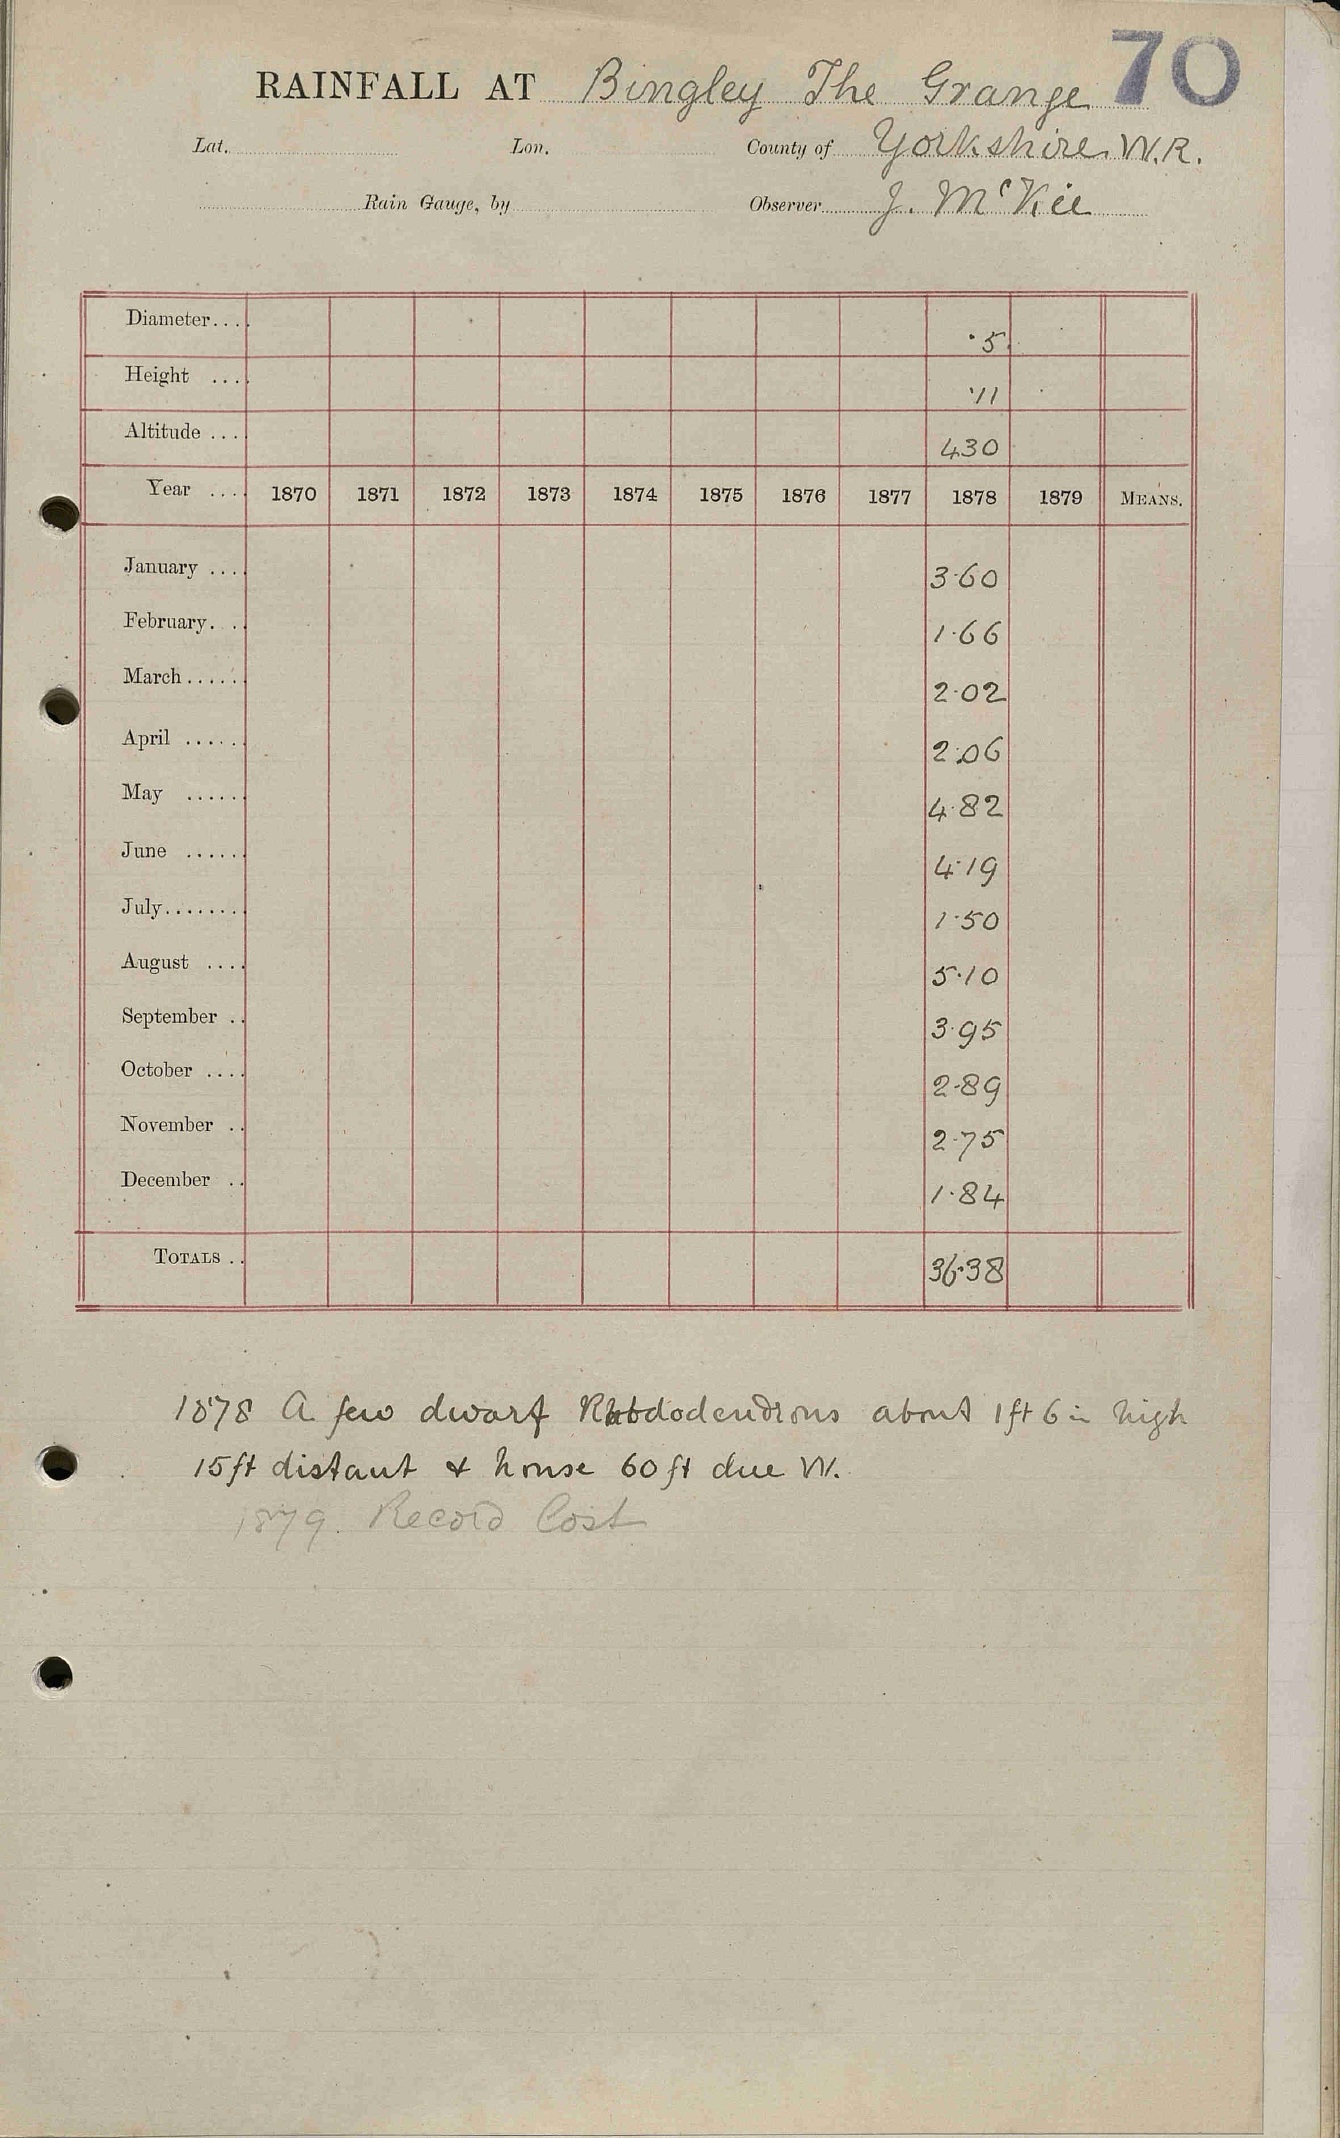 70
RAINFALL AT Bingley The Grange
Lat. Lon. County of Yorkshire W.R.
Rain Gauge, by Observer J. McKie
Diameter.... ·5
Height .... ·11
Altitude ... 430
Year .... 1870 1871 1872 1873 1874 1875 1876 1877 1878 1879 MEANS.
January .... 3·60
February. .. 1·66
March...... 2·02
April ...... 2·06
May ...... 4·82
June ...... 4·19
July....... 1·50
August .... 5·10
September .. 3·95
October .... 2·89
November .. 2·75
December .. 1·84
TOTALS .. 36·38
1878 A few dwarf dodendrons about 1ft 6 in high
15ft distant & house 60 ft due W.
1879. Record Lost